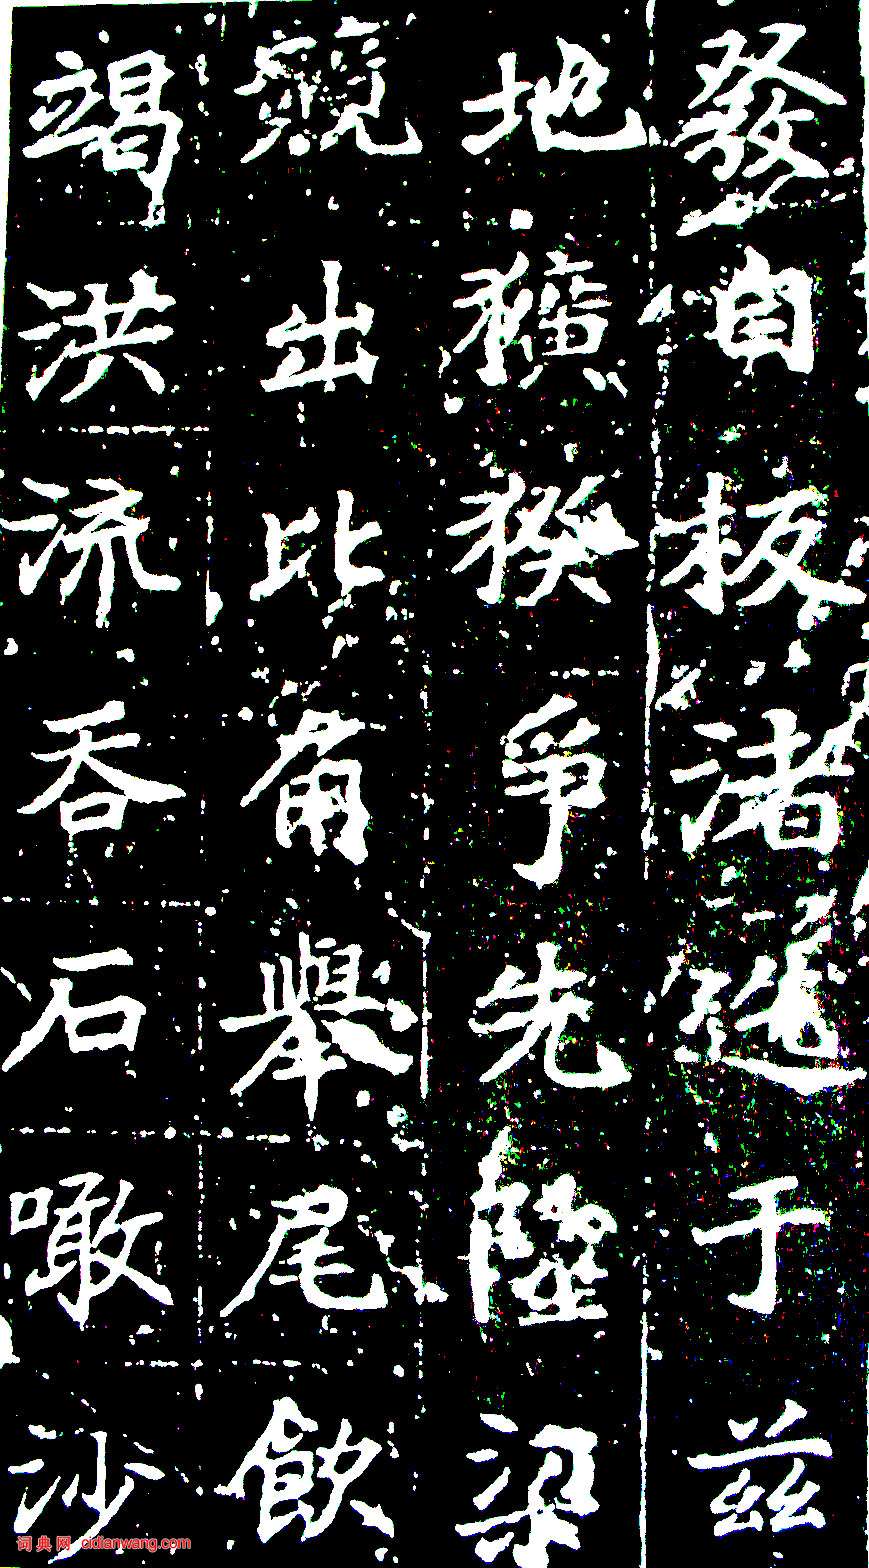 發自板渚于兹
地獷猤爭先隥梁
競出比角舉尾飲
竭洪流吞石噉沙
词典网 cidianwang.com